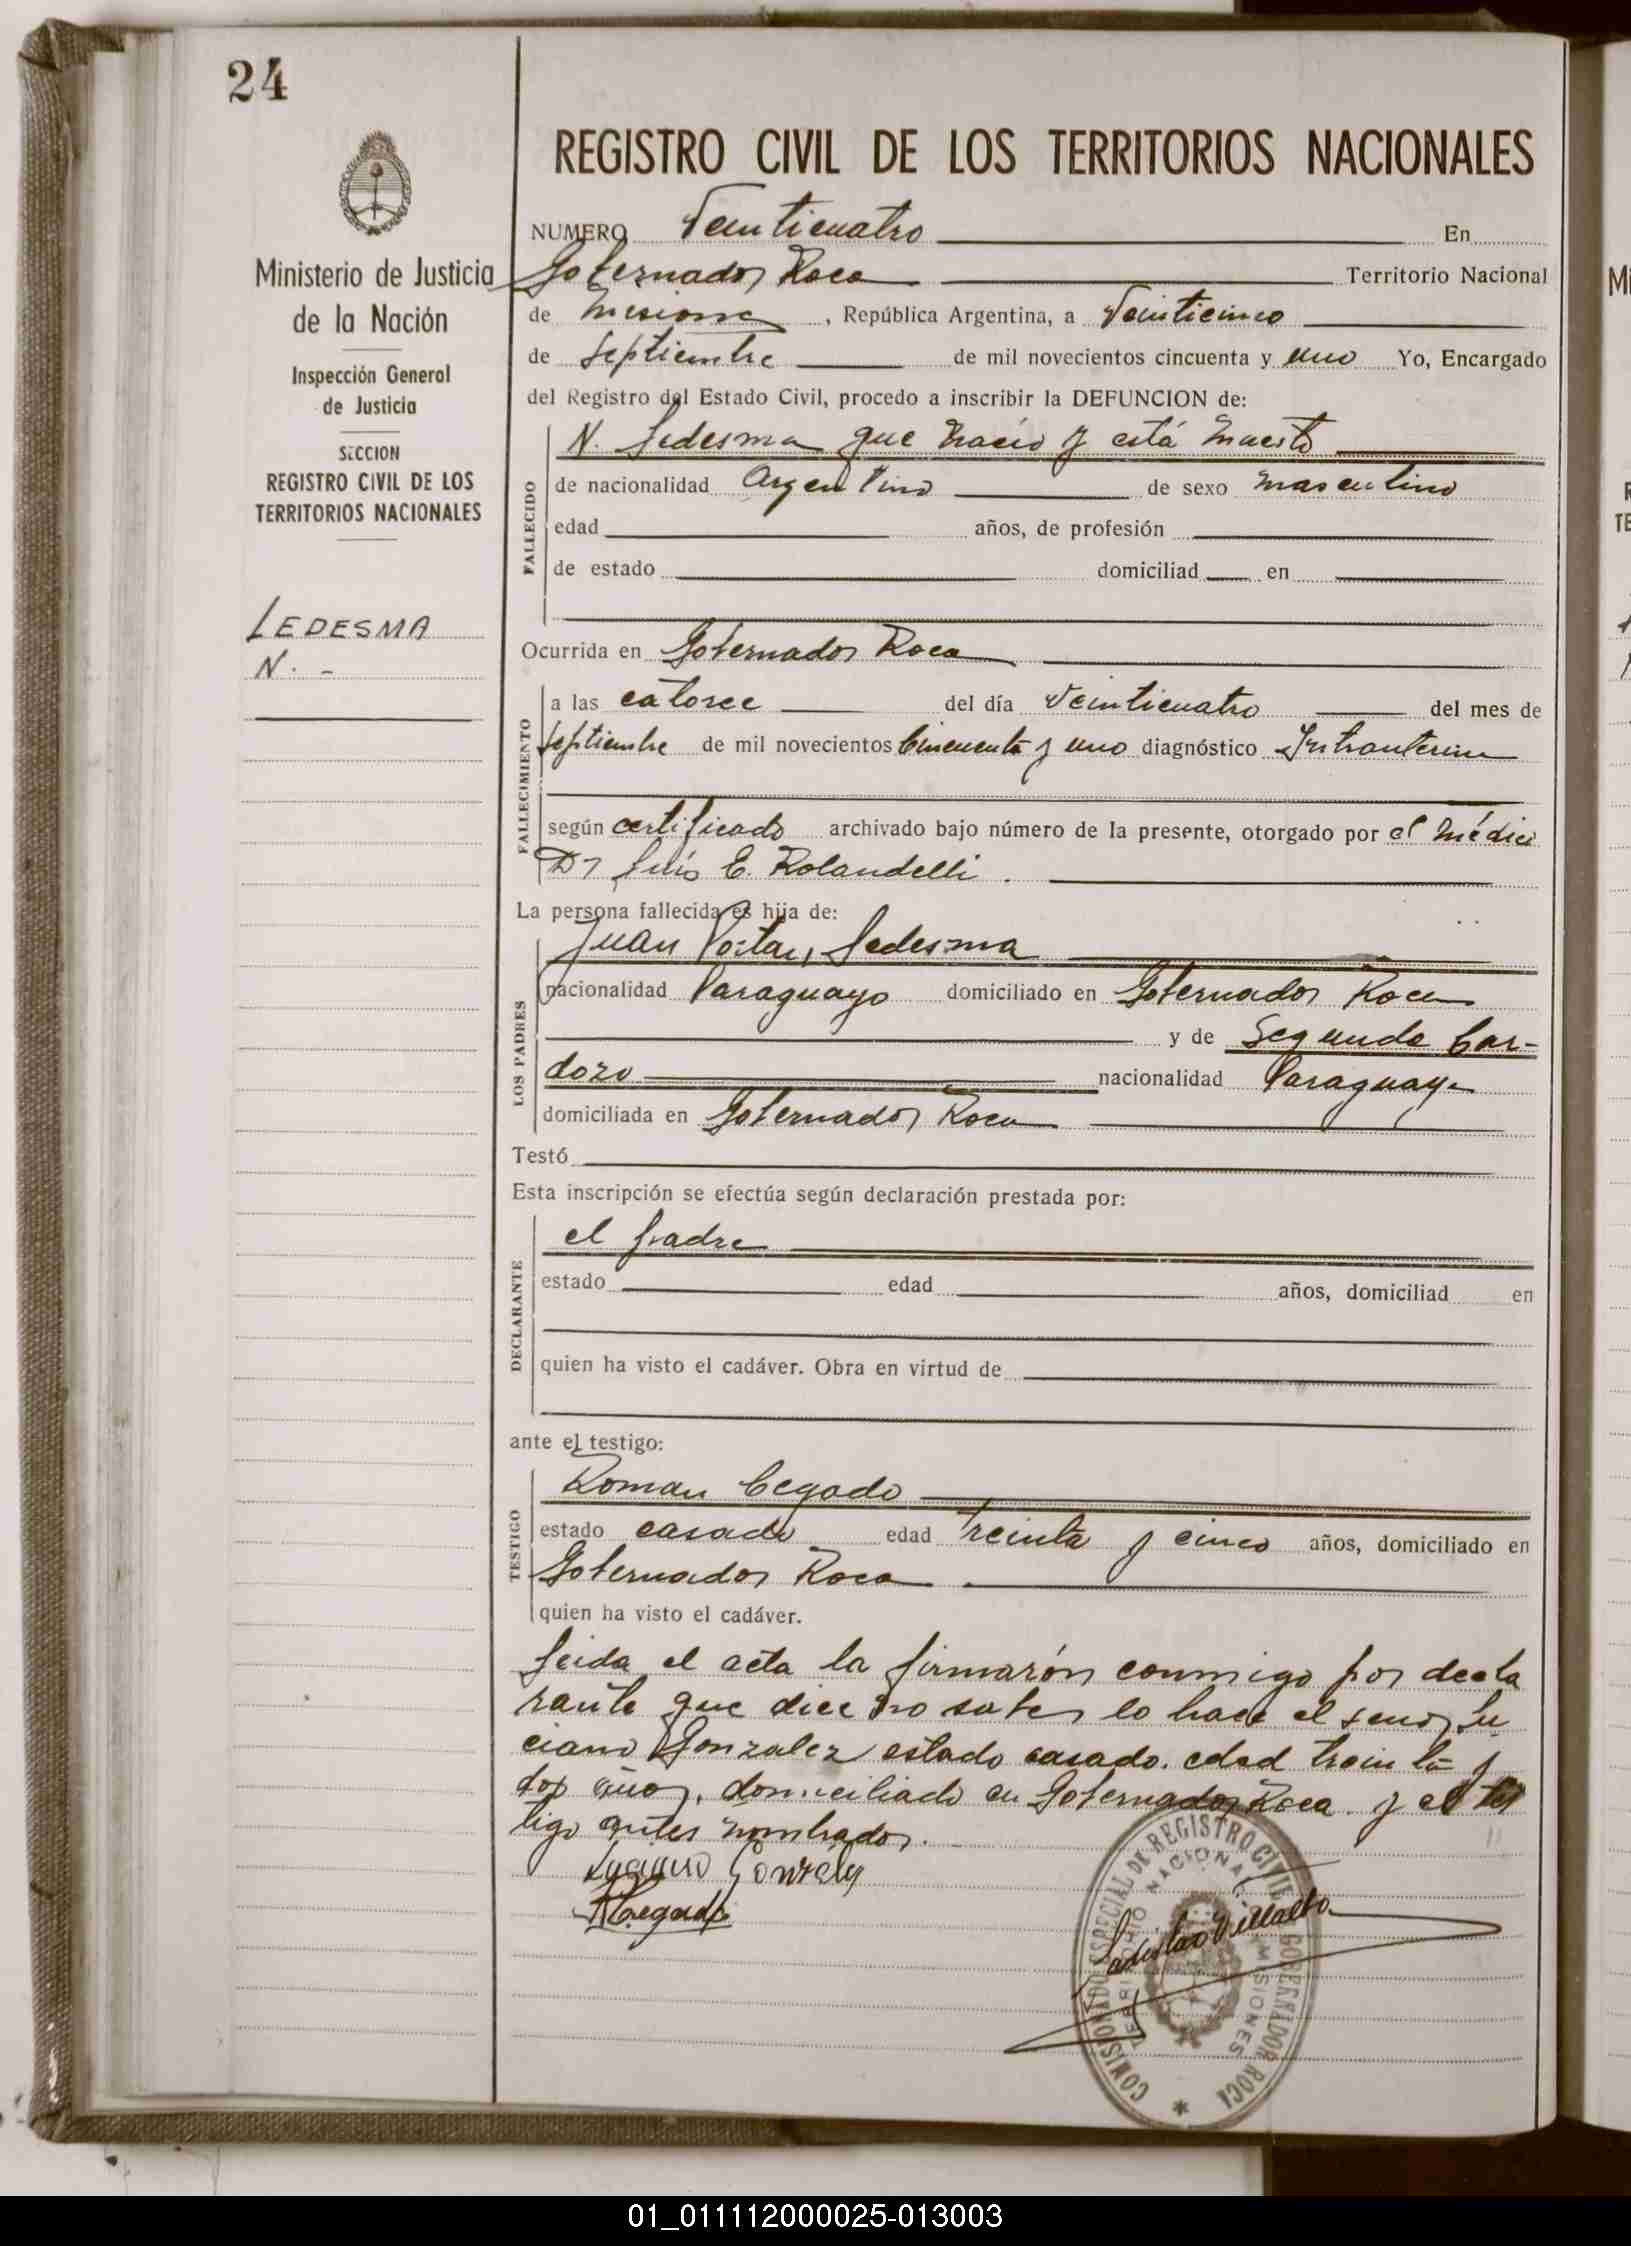 24
Ministerio de Justicia
de la Nación
Inspección General
de Justicia
SECCION
REGISTRO CIVIL DE LOS
TERRITORIOS NACIONALES
LEDESMA
N. -
REGISTRO CIVIL DE LOS TERRITORIOS NACIONALES
NUMERO Veinticuatro En
Gobernador Roca Territorio Nacional
de Misiones, República Argentina, a Veinticinco
de Septiembre de mil novecientos cincuenta y uno Yo, Encargado
del Registro del Estado Civil, procedo a inscribir la DEFUNCION de:
FALLECIDO
N. Ledesma que nacio y está muerto
de nacionalidad Argentino de sexo masculino
edad años, de profesión
de estado domiciliad en
Ocurrida en Gobernador Roca
FALLECIMIENTO
a las catorce del día Veinticuatro del mes de
Septiembre de mil novecientos Cincuenta y uno diagnóstico Intrauterino
según certificado archivado bajo número de la presente, otorgado por el médico
Dr Luis E. Rolandelli.
La persona fallecida es hija de:
LOS PADRES
Juan Ledesma
nacionalidad Paraguayo domiciliado en Gobernador Roca
y de Segunda Car-
dozo nacionalidad Paraguaya
domiciliada en Gobernador Roca
Testó
Esta inscripción se efectúa según declaración prestada por:
DECLARANTE
el padre
estado edad años, domiciliad en
quien ha visto el cadáver. Obra en virtud de
ante el testigo:
TESTIGO
Roman Cegado
estado casado edad treinta y cinco años, domiciliado en
Gobernador Roca
quien ha visto el cadáver.
Leida el acta la firmarón conmigo por decla
rante que dice no saber lo hace el senor Lu
ciano Gonzalez estado casado. edad treinta y
dos años, domiciliado en Gobernador Roca. y el tes
tigo antes nombrado.
Luciano Gonzalez
COMISIONADO ESPECIAL DE REGISTRO CIVIL GOBERNADOR ROCA
TERRITORIO NACIONAL MISIONES
Villalba
01_011112000025-013003